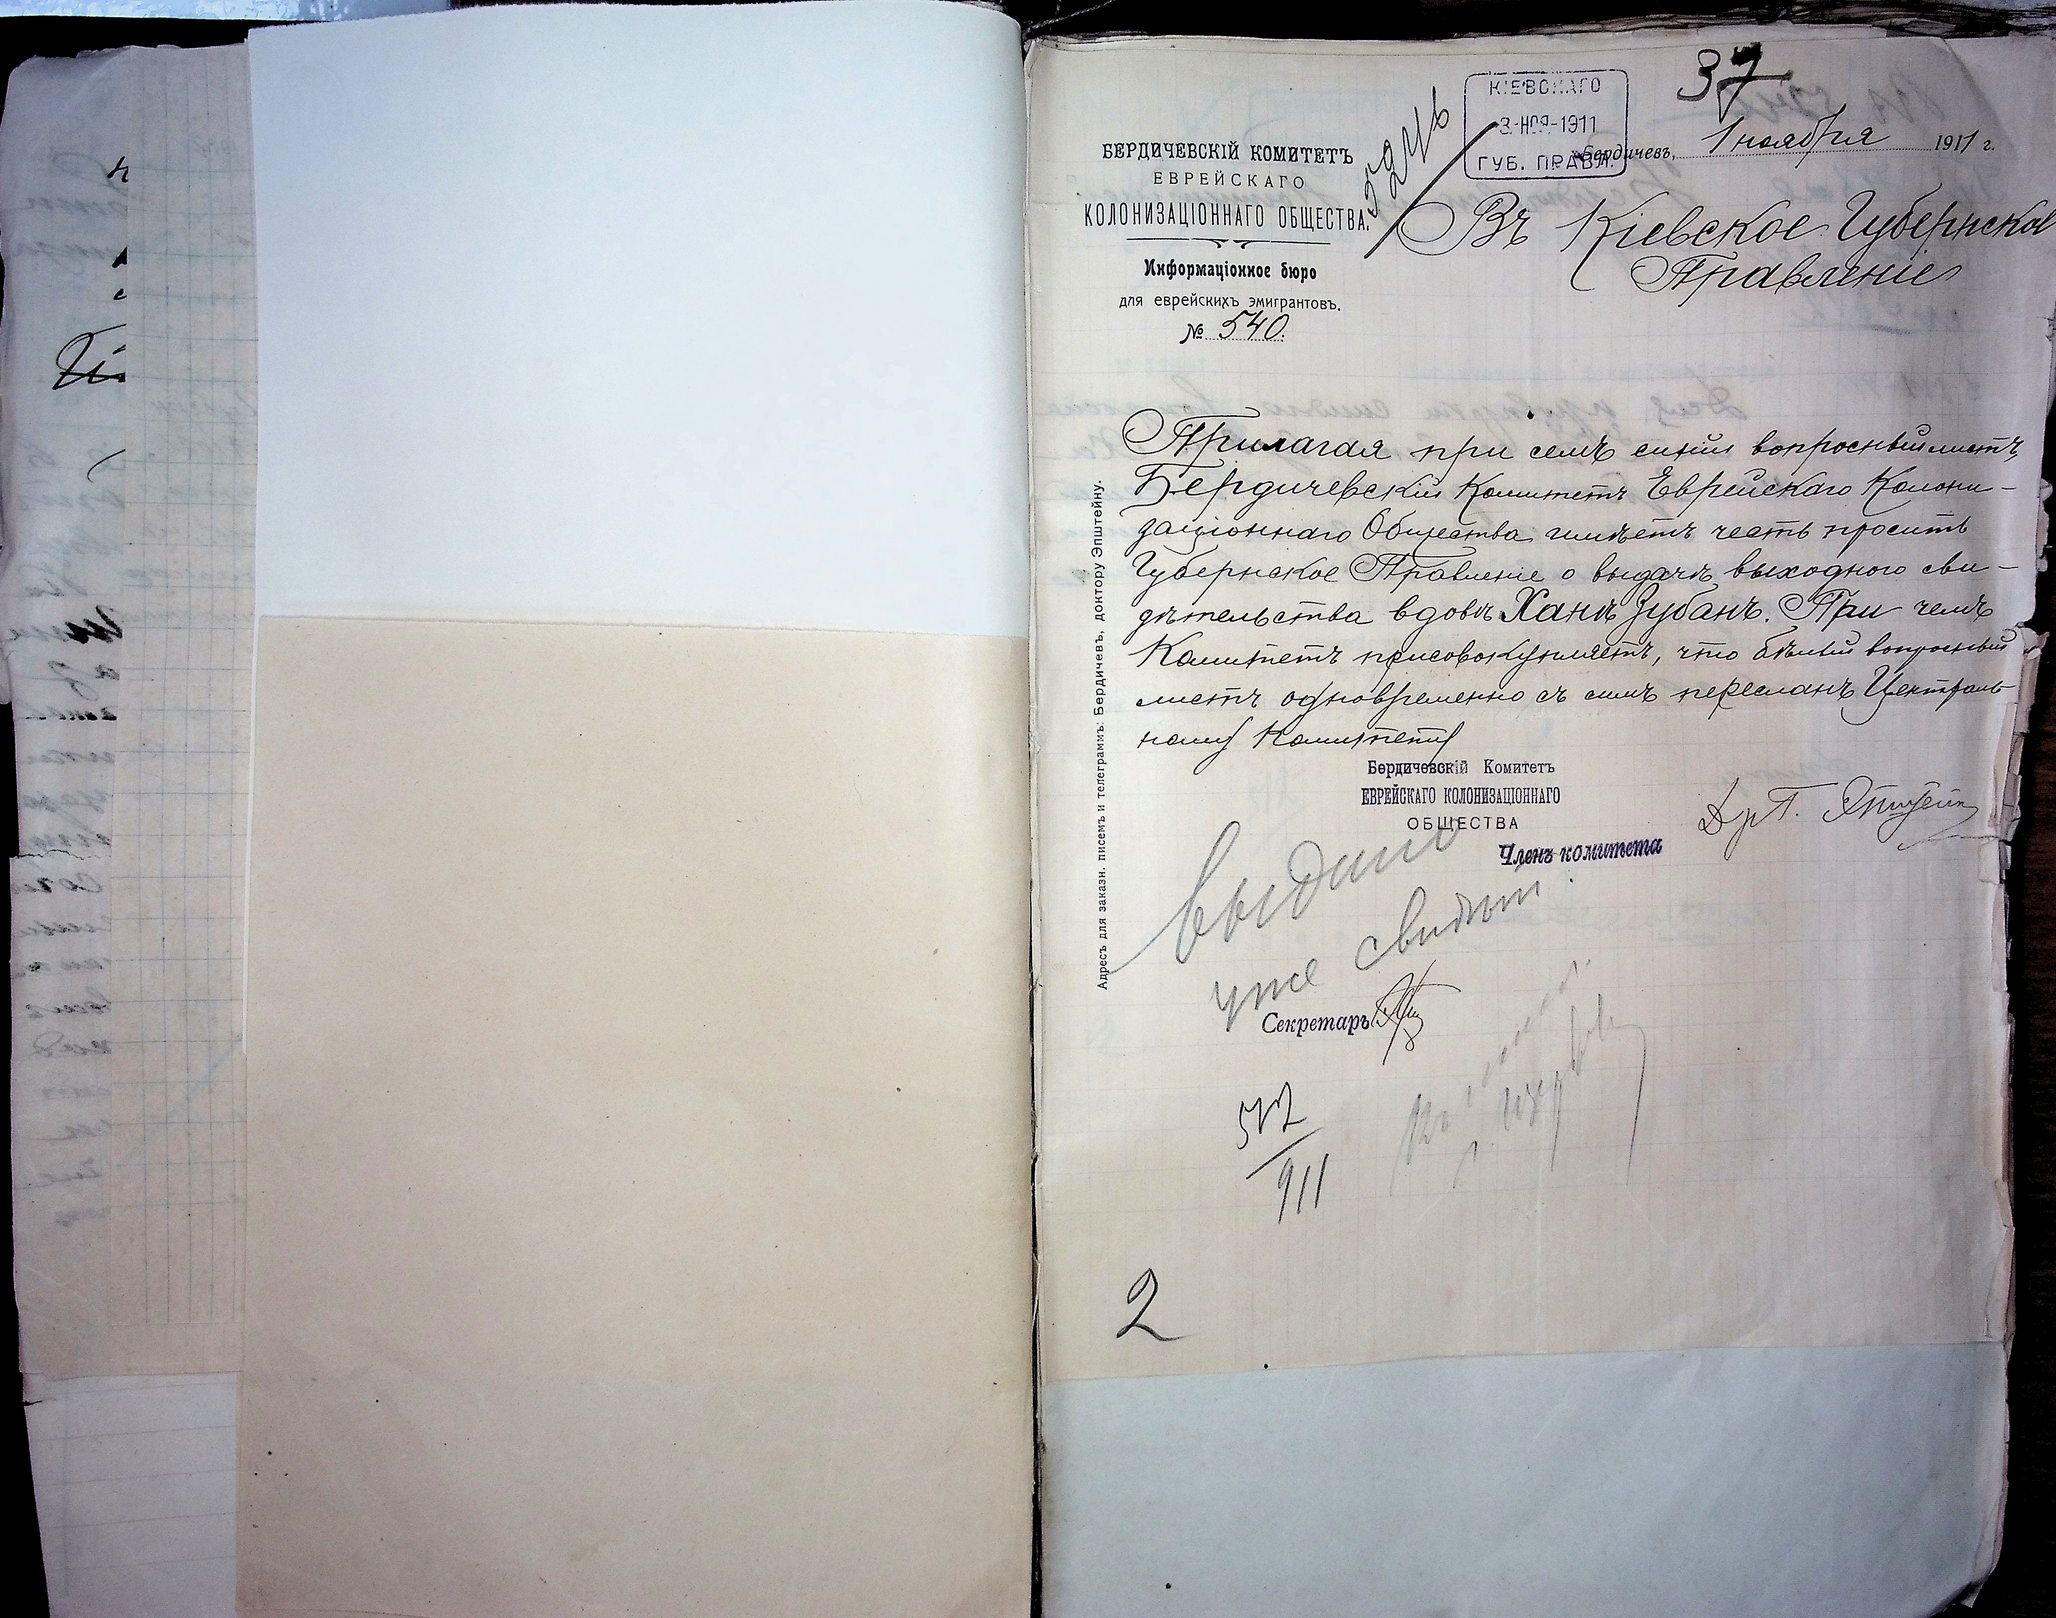 37
КІЕВСКАГО
3-НОЯ-1911
ГУБ. ПРАВЛ.
Бердичевъ, 1 ноября 1911 г.
БЕРДИЧЕВСКІЙ КОМИТЕТЪ
ЕВРЕЙСКАГО
КОЛОНИЗАЦІОННАГО ОБЩЕСТВА.
Информаціонное бюро
для еврейскихъ эмигрантовъ.
№ 540.
Въ Кіевское Губернское
Правленіе
Прилагая при семъ синій вопросный листъ,
Бердичевскій Комитетъ Еврейскаго Колони-
заціоннаго Общества имѣетъ честь просить
Губернское Правленіе о выдачѣ выходного сви-
дѣтельства вдовѣ Ханѣ Зубанъ. При чемъ
Комитетъ присовокупляетъ, что бѣлый вопросный
листъ одновременно съ симъ пересланъ Централь-
ному Комитету
Адресъ для заказн. писемъ и телеграммъ: Бердичевъ, доктору Эпштейну.
Бердичевскій Комитетъ
ЕВРЕЙСКАГО КОЛОНИЗАЦІОННАГО
ОБЩЕСТВА
Членъ комитета
Др П. Эпштейн
выдано
уже свидѣт.
Секретарь
911
2